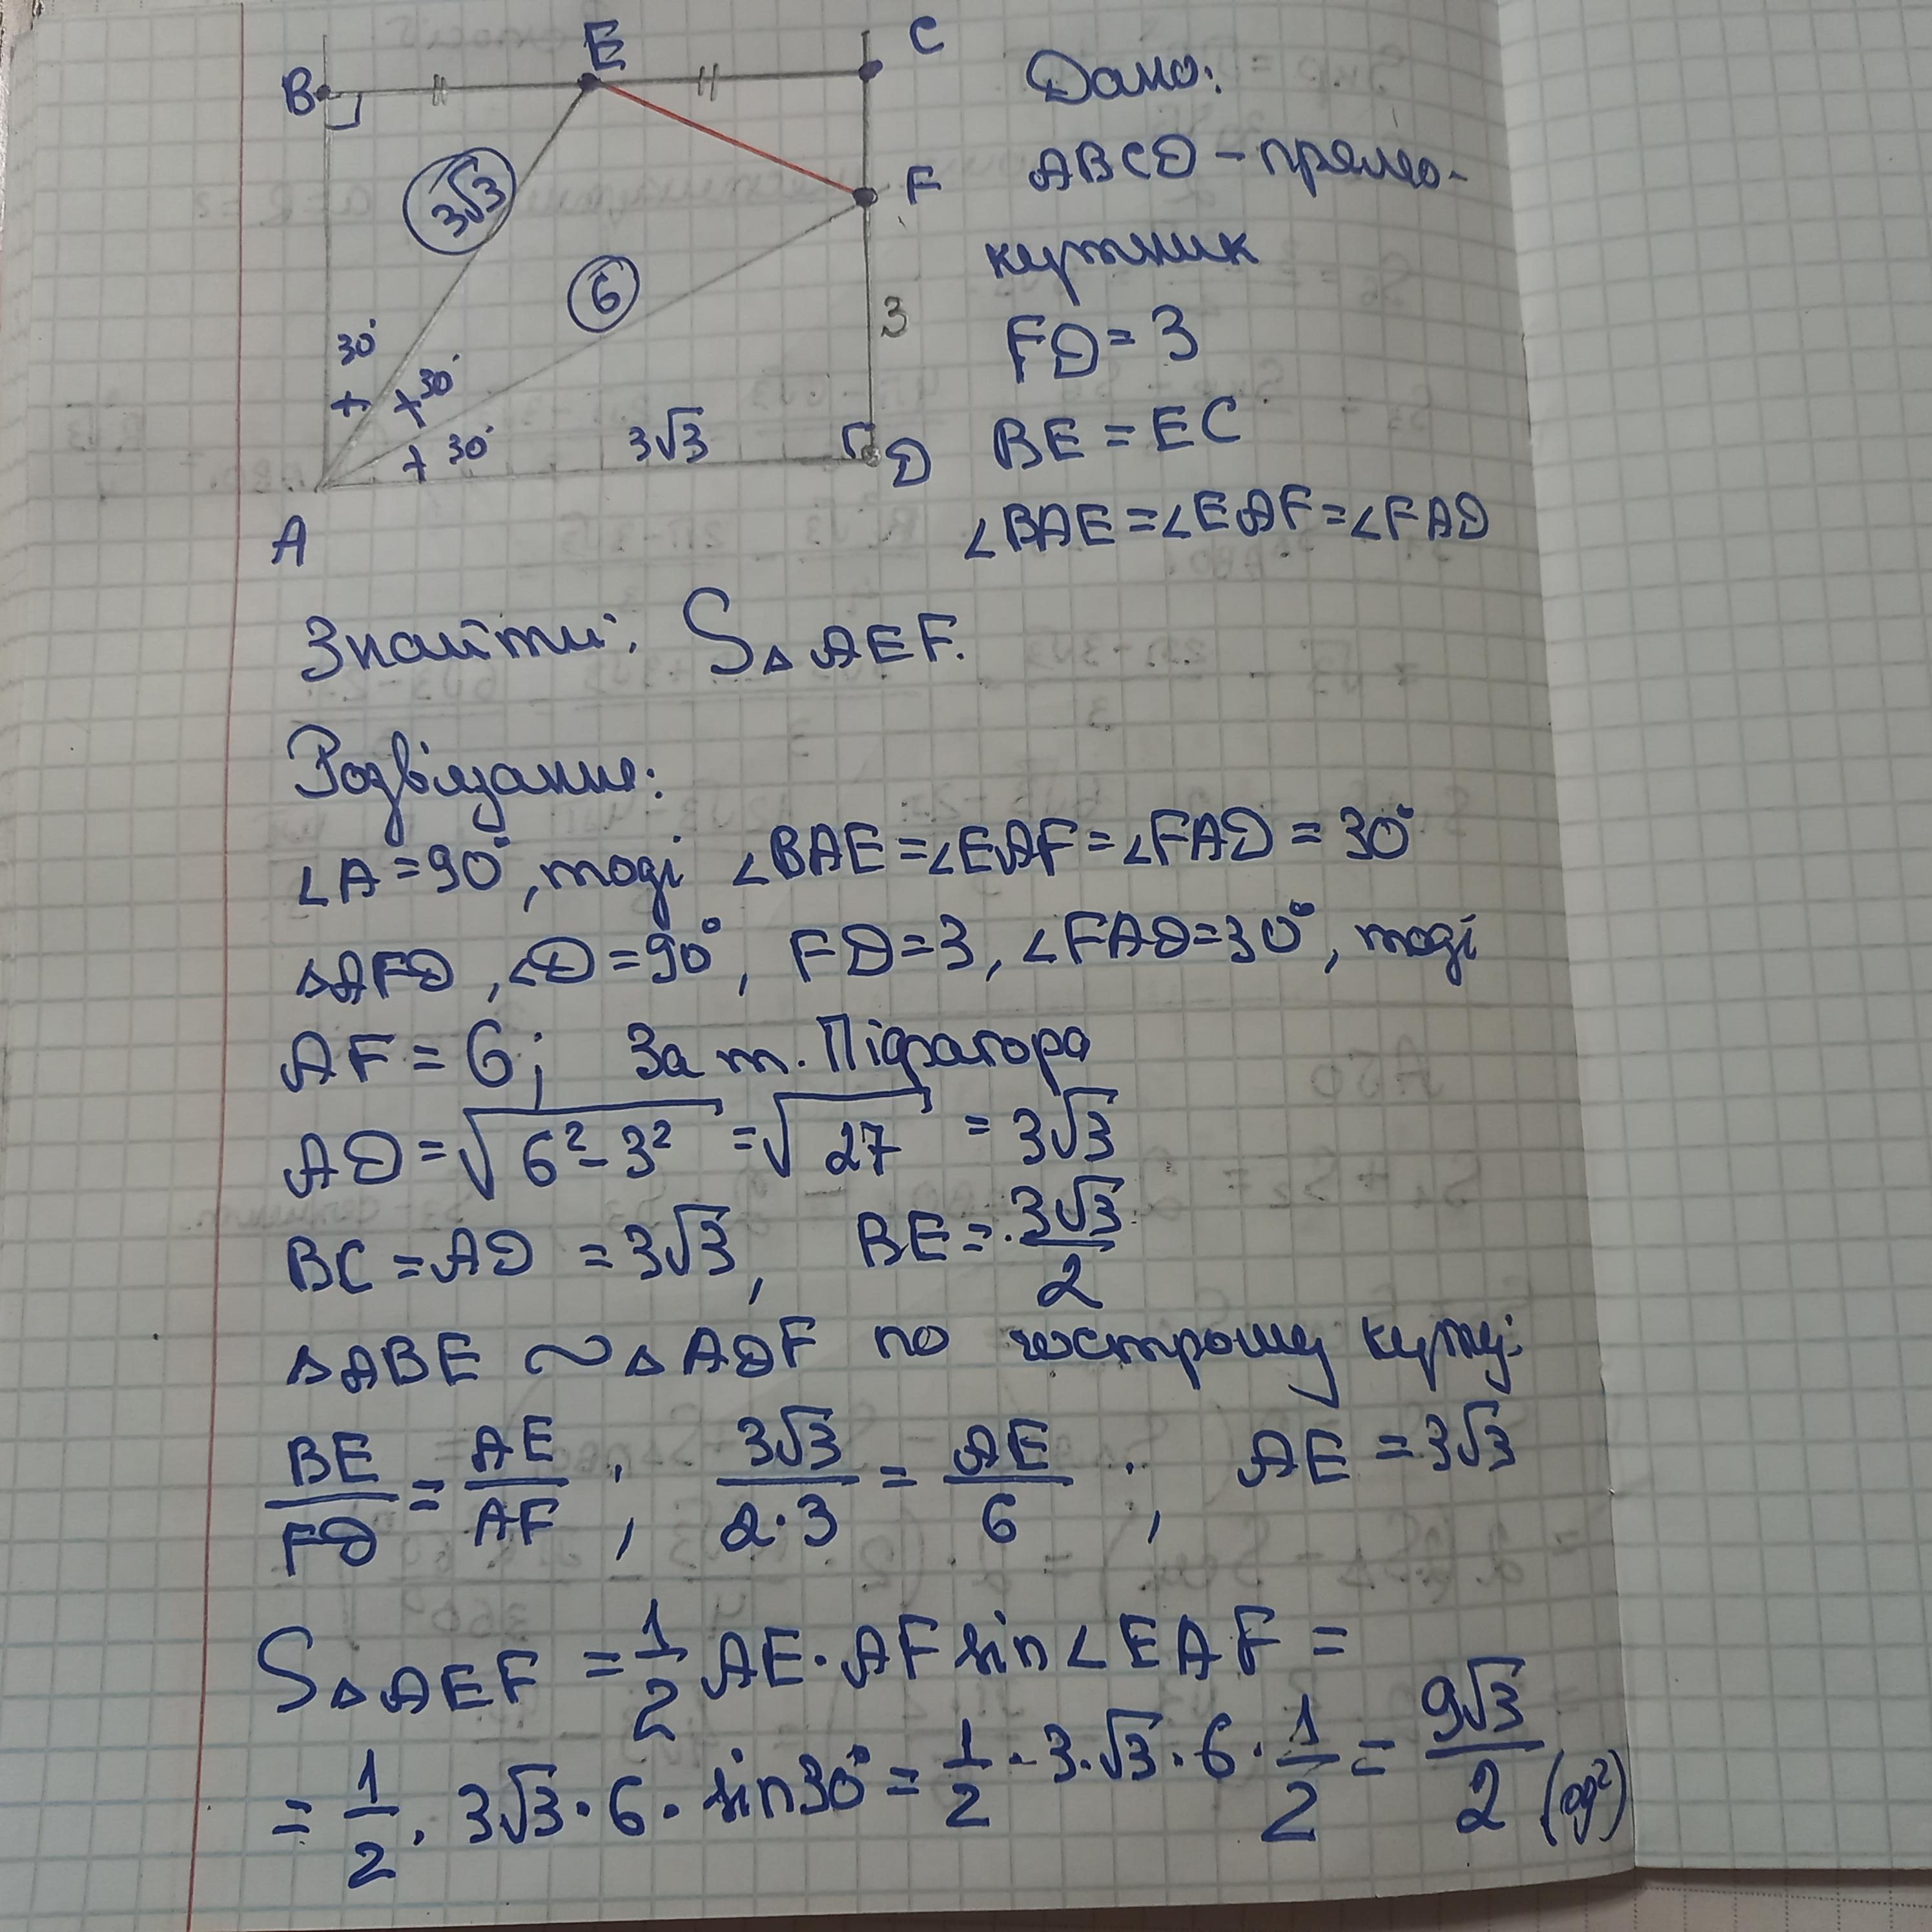 B E C
3√3
F
6
3
30°
30°
30°
3√3
D
A
Дано:
ABCD - прямо-
кутник
FD = 3
BE = EC
∠BAE = ∠EAF = ∠FAD
Знайти: S△AEF.
Розв'язання:
∠A = 90°, тоді ∠BAE = ∠EAF = ∠FAD = 30°
△AFD, ∠D = 90°, FD = 3, ∠FAD = 30°, тоді
AF = 6; За т. Піфагора
AD = √(6² - 3²) = √27 = 3√3
BC = AD = 3√3, BE = 3√3/2
△ABE ~ △ADF по гострому куту:
BE/FD = AE/AF, 3√3/(2·3) = AE/6; AE = 3√3
S△AEF = 1/2 AE · AF sin∠EAF =
= 1/2 · 3√3 · 6 · sin30° = 1/2 · 3 · √3 · 6 · 1/2 = 9√3/2 (од²)